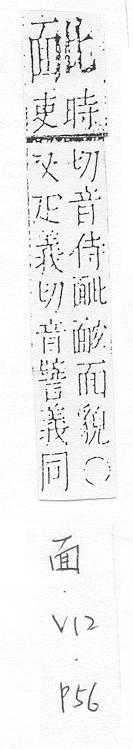 時
吏
切音侍面貌○
又疋義切音譬義同
面
·
V12
·
P56